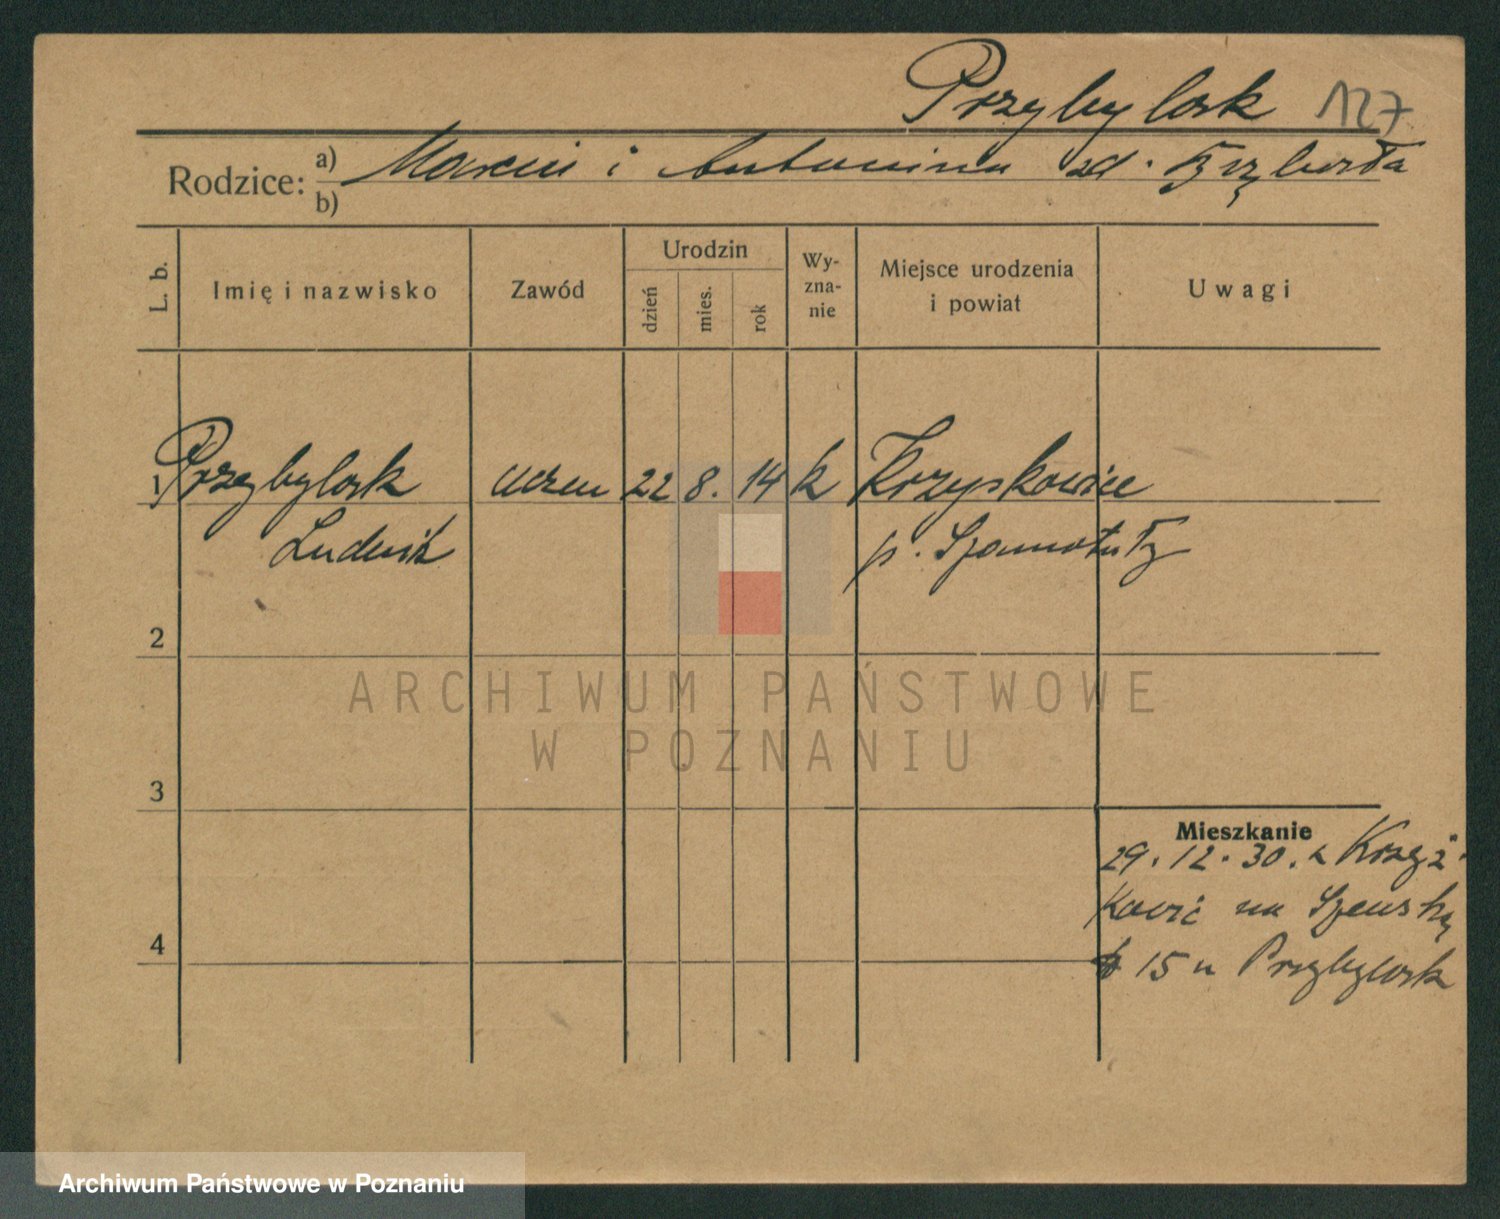 Przybylak 127
Rodzice: a) Marcin i Antonina zd.
b)
L. b. Imię i nazwisko Zawód Urodzin dzień mies. rok Wy-zna-nie Miejsce urodzenia i powiat Uwagi
1 Przybylak uczeń 22 8. 14 k Krzyskowice
Ludwik p. Szamotuły
2
3
Mieszkanie
29.12.30. z Krzyż-
kowic na Szewską
4
15 u Przybylak
ARCHIWUM PAŃSTWOWE
W POZNANIU
Archiwum Państwowe w Poznaniu